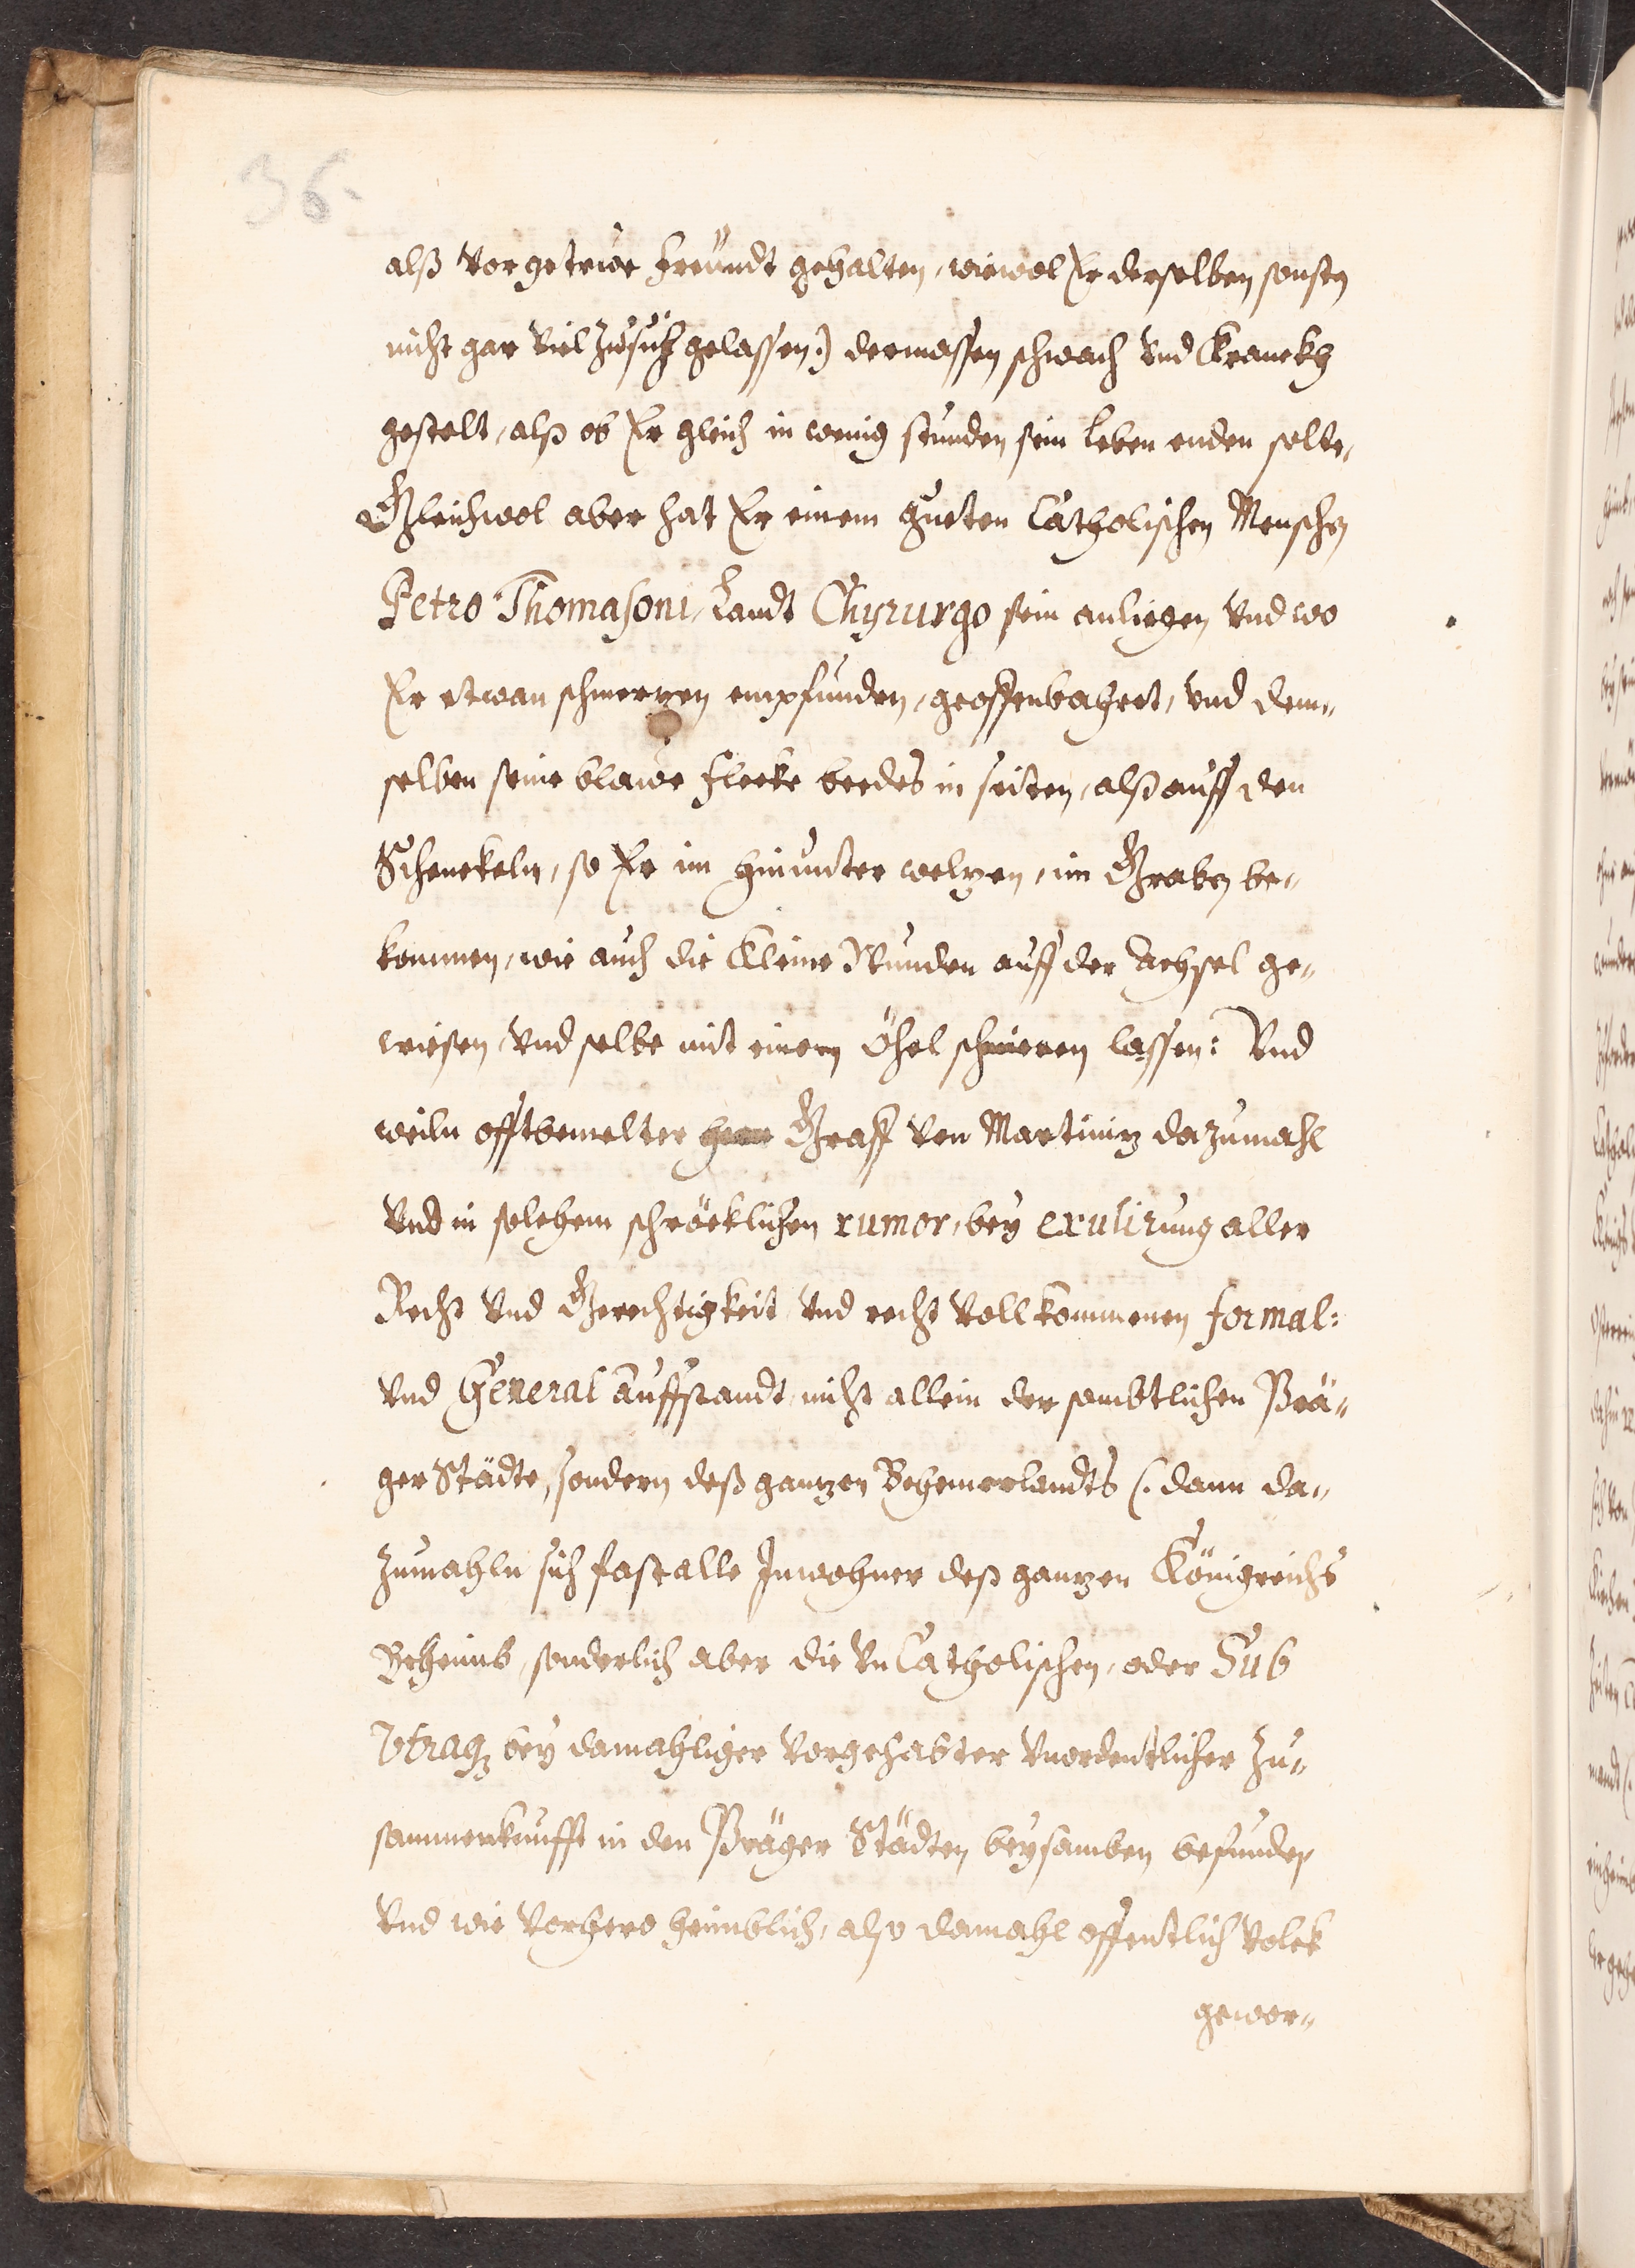 36.
alß vor getrewe Freündt gehalten, wiewol Er derselben sonsten
nicht gar viel zu sich gelassen:) dermassen schwach vnd Kranckh
gestelt, alß ob Er gleich in wenig stunden sein Leben enden solte,
Gleichwol aber hat Er einem gueten Catholischen Menschen
Petro Thomasoni, Landt Chyrurgo sein anliegen vnd wo
Er etwan schmertzen empfunden, geoffenbahret, vnd dem„
selben seine blawe Flecke beedes in seiten, alß auff den
Schenckeln, so Er im hinunter weltzen, im Graben be„
kommen, wie auch die Kleine Wunden auff der Achsel ge„
wiesen, vnd selbe mit einem Öhel schmieren lassen: Vnd
weiln offtbemelter Herr Graff von Martinitz dazumahl
vnd in solchem schröcklichen rumor, bey exulirung aller
Recht vnd Gerechtigkeit vnd recht vollkommenen formal:
vnd General Auffstandt nicht allein der sambtlichen Prä„
ger Städte, sondern deß gantzen Behemerlandts (: dann da„
zumahln sich fast alle Inwohner deß gantzen Königreichs
Beheimb, sonderlich aber die vnCatholischen, oder Sub
Vtraq; bey damahliger vorgehabter vnordentlicher Zu„
sammenkunfft in den Präger Städten beysamben befunden
vnd wie vorhero heimblich, also damahl offentlich Volck
gewor„